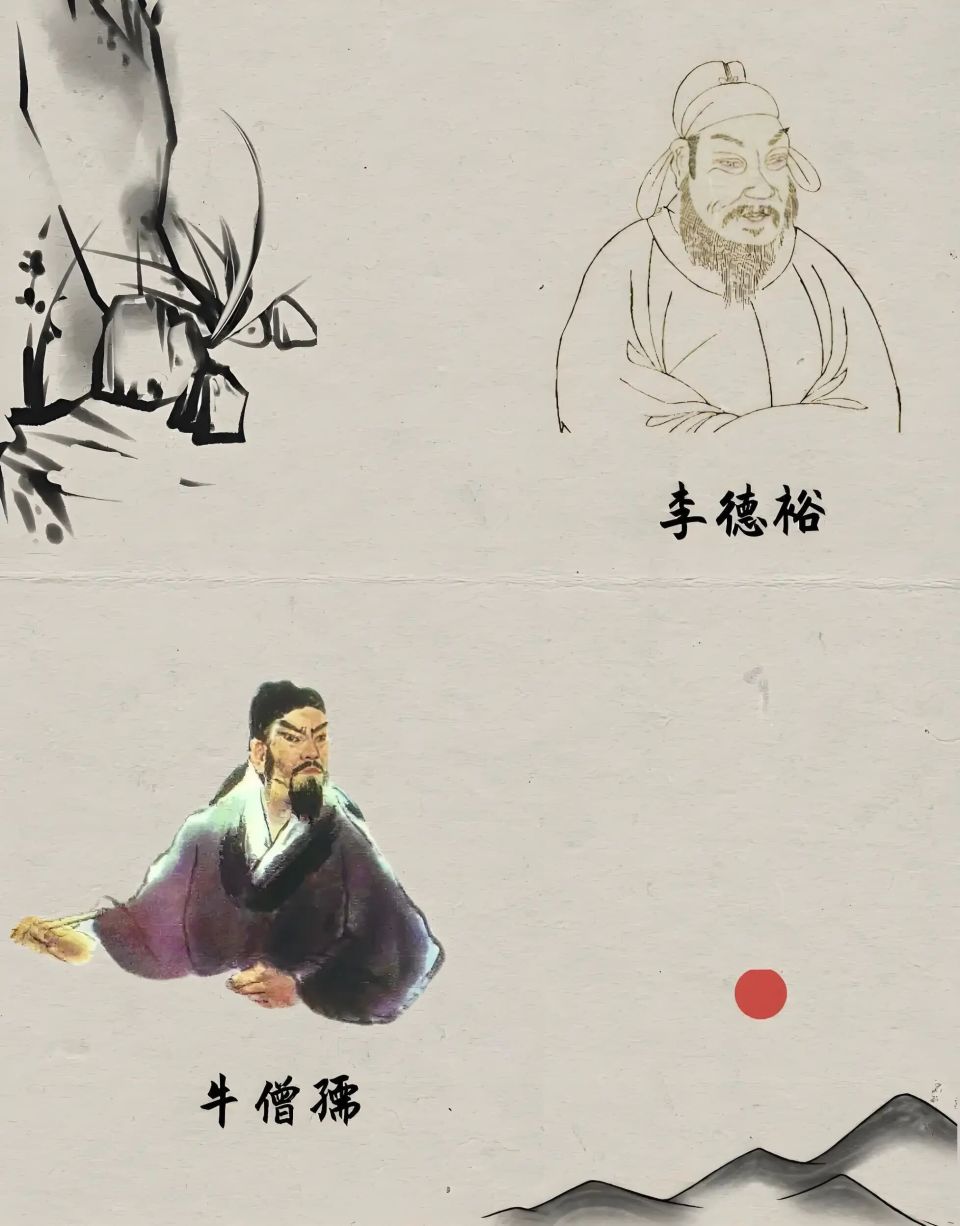 李德裕
牛僧孺